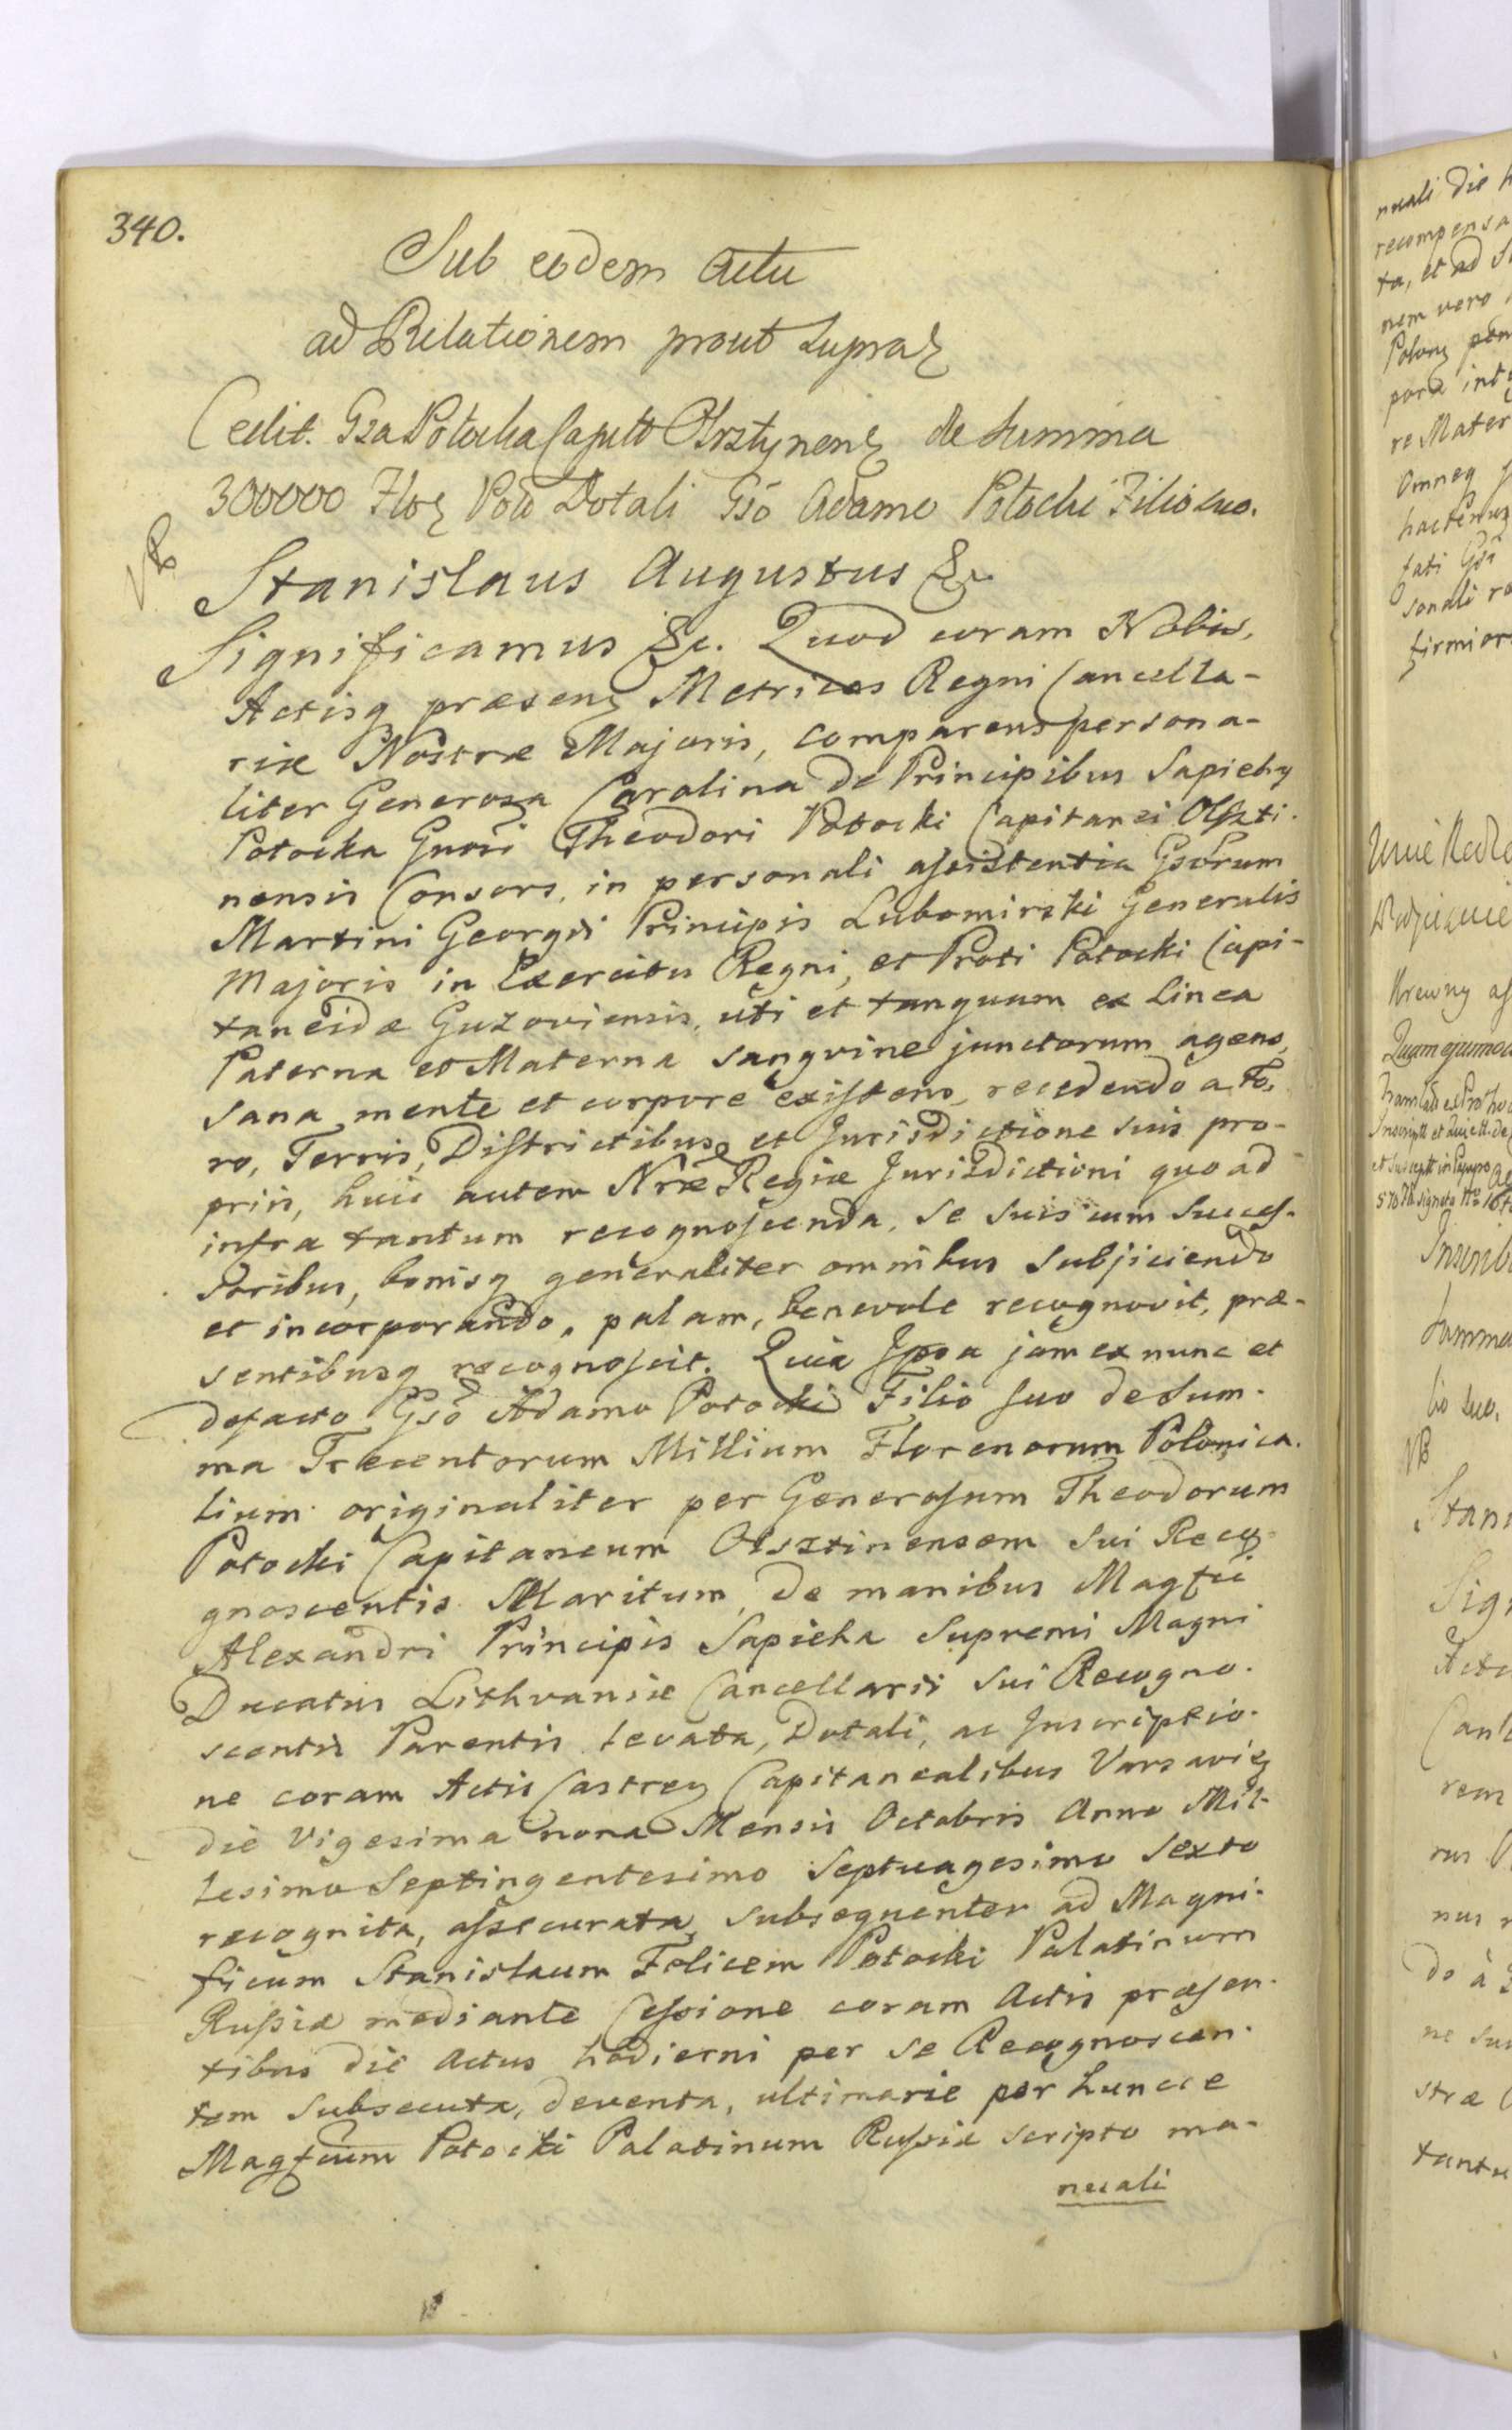 340.
Sub eodem Actu
ad Relationem prout supra
Cedit. Gsa Potocka Capitt Olsztynens de Summa
300000 Flor Pol Dotali Gso Adamo Potocki Filio suo.
NB
Stanislaus Augustus &c
Significamus &c. Quod coram Nobis,
Actisq præsens Metrices Regni Cancella-
riæ Nostræ Majoris, comparens persona-
liter Generosa Carolina de Principibus Sapiehy
Potocka Gnosi Theodori Potocki Capitanei Olszti-
nensis Consors, in personali assistentia Gsorum
Martini Georgii Principis Lubomirski Generalis
Majoris in Exercitu Regni, et Proti Potocki Capi-
taneidæ Guzoviensis, uti et tanquam ex Linea
Paterna et Materna sangvine junctorum agens,
sana mente et corpore existens, recedendo a Fo-
ro, Terris, Districtibusq et Jurisdictione suis pro-
priis, huic autem Nræ Regiæ Jurisdictioni quo ad
infra tantum recognoscenda, se suis cum Succes-
soribus, bonisq generaliter omnibus subjiciendo
et incorporando, palam, benevole recognovit, præ-
sentibusq recognoscit. Quia Ipsa jam ex nunc et
defacto Gso Adamo Potocki Filio suo de Sum-
ma Trecentorum Millium Florenorum Polonica-
lium originaliter per Generosum Theodorum
Potocki Capitaneum Olsztinensem sui Recog-
gnoscentis Maritum, de manibus Magfci
Alexandri Principis Sapieha Supremi Magni
Ducatus Lithvaniæ Cancellarii sui Recogno-
scentis Parentis levata, Dotali, ac Inscriptio-
ne coram Actis Castren Capitanealibus Varsavien
die Vigesima nona Mensis Octobris Anno Mil-
lesimo Septingentesimo Septuagesimo Sexto
recognita, assecurata, subsequenter ad Magni-
ficum Stanislaum Felicem Potocki Palatinum
Russiæ mediante Cessione coram Actis præsen-
tibus die Actus hodierni per se Recognoscen-
tem subsecuta, deventa, ultimarie per huncce
Magfcum Potocki Palatinum Russiæ scripto ma-
nuali
nuali die
recompensa
ta, et ad
nem vero
re Mater
hactenus
tati Gsi
sonali
firmior
lio suo.
NB